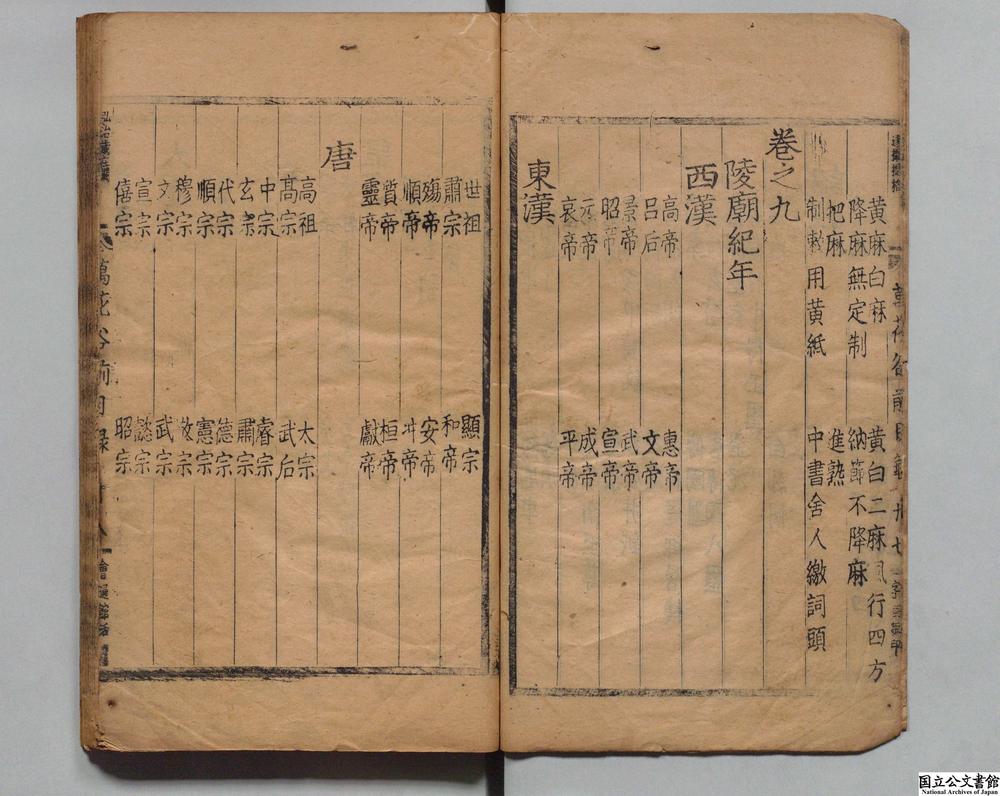 黄麻白麻 黄白二麻風行四方
降麻無定制 納節不降麻
把麻 進熟
制勑用黄紙 中書舍人繳詞頭
卷之九
陵廟紀年
西漢
高帝 惠帝
呂后 文帝
景帝 武帝
昭帝 宣帝
元帝 成帝
哀帝 平帝
東漢
世祖 顯宗
肅宗 和帝
殤帝 安帝
順帝 冲帝
質帝 桓帝
靈帝 獻帝
唐
高祖 太宗
髙宗 武后
中宗 睿宗
玄宗 肅宗
代宗 德宗
順宗 憲宗
穆宗 敬宗
文宗 武宗
宣宗 懿宗
僖宗 昭宗
萬花谷前目錄
国立公文書館
National Archives of Japan